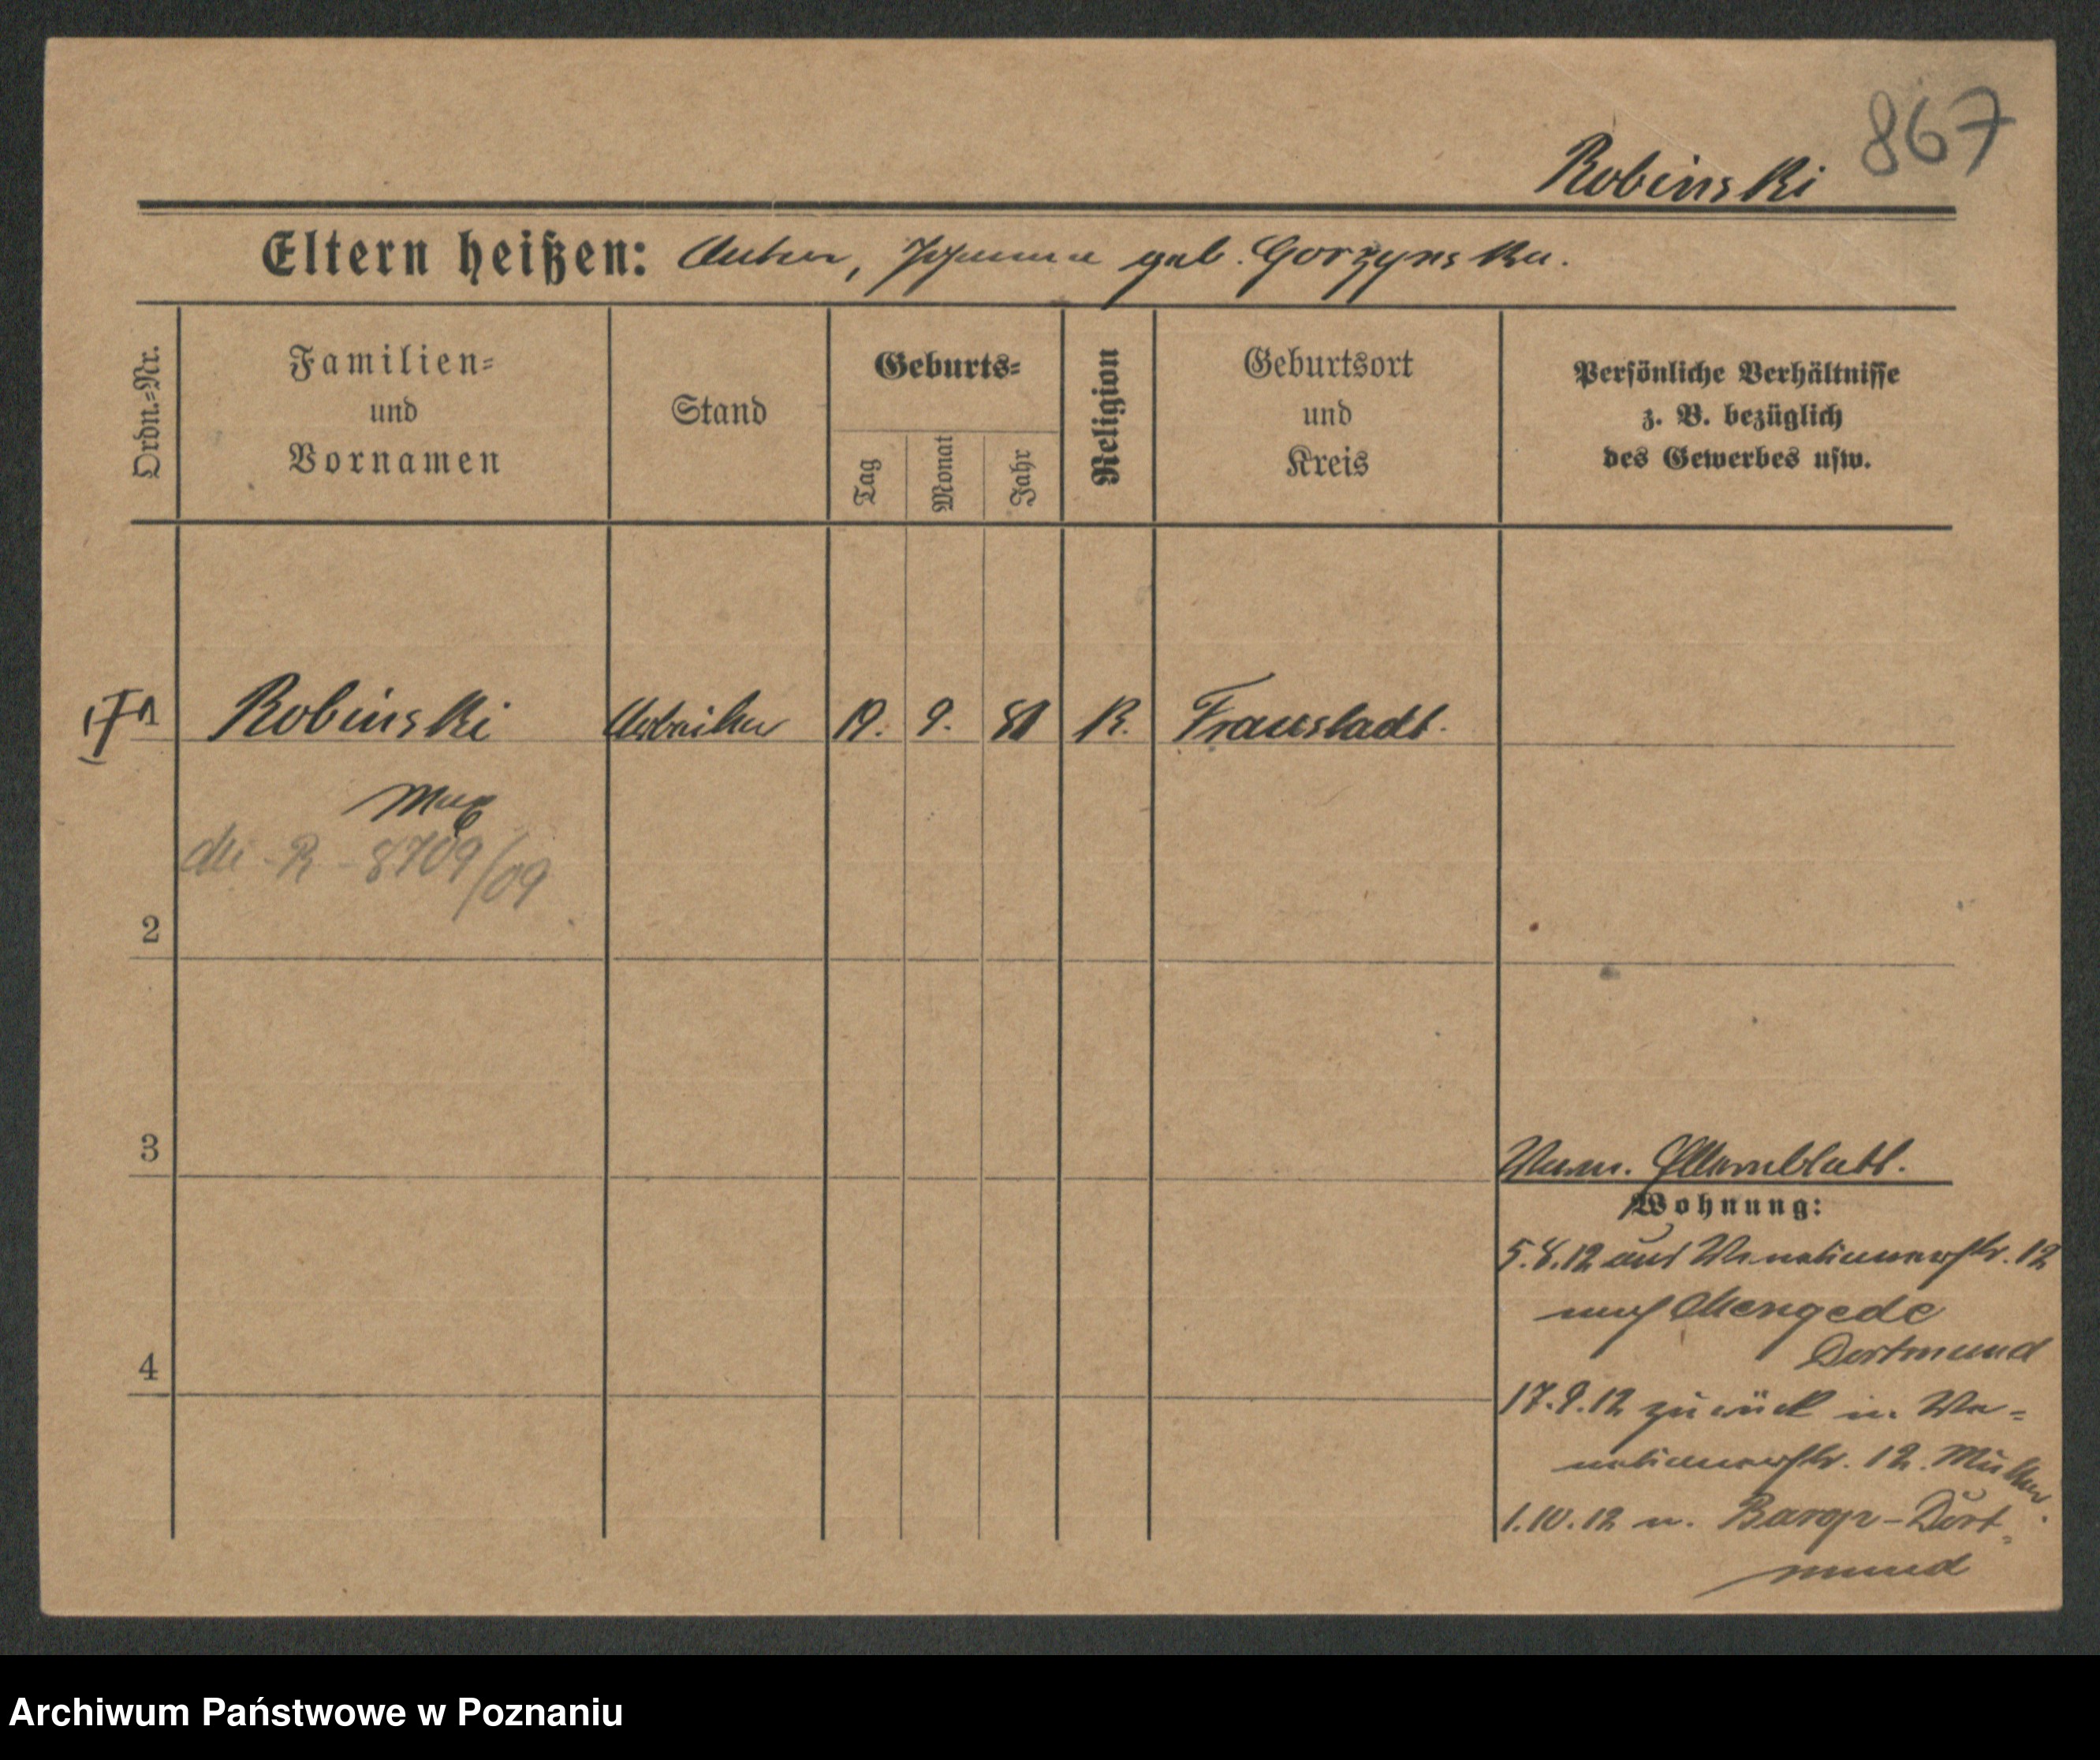 867
Robinski
Eltern heißen: Anton, Johanna geb. Gorzynska.
Ordn.=Nr.
Familien=
und
Vornamen
Stand
Geburts=
Tag
Monat
Jahr
Religion
Geburtsort
und
Kreis
Persönliche Verhältnisse
z. B. bezüglich
des Gewerbes usw.
1
Robinski
Arbeiter
19.
9.
K.
Fraustadt.
Max
R - 8709/09
2
3
Elternblatt.
Wohnung:
5.8.12 aus Venetianerstr. 12
nach Mengede
Dortmund
17.9.12 zurück n. Ve=
netianerstr. 12.
1.10.12 n. Barop - Dort=
mund
4
Archiwum Państwowe w Poznaniu